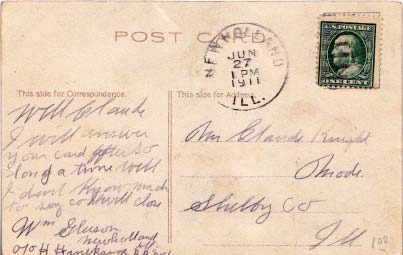 POST CARD
NEW HOLLAND
JUN
27
1 PM
1911
ILL.
U.S. POSTAGE
ONE CENT
This side for Correspondence.
This side for Address.
Well Claude
I will answer
your card after so
long a time well
I dont know much
to say so will close
Wm Gleason
New holland
Mr Claude Knight
Mode
Shelby Co
Ill
100